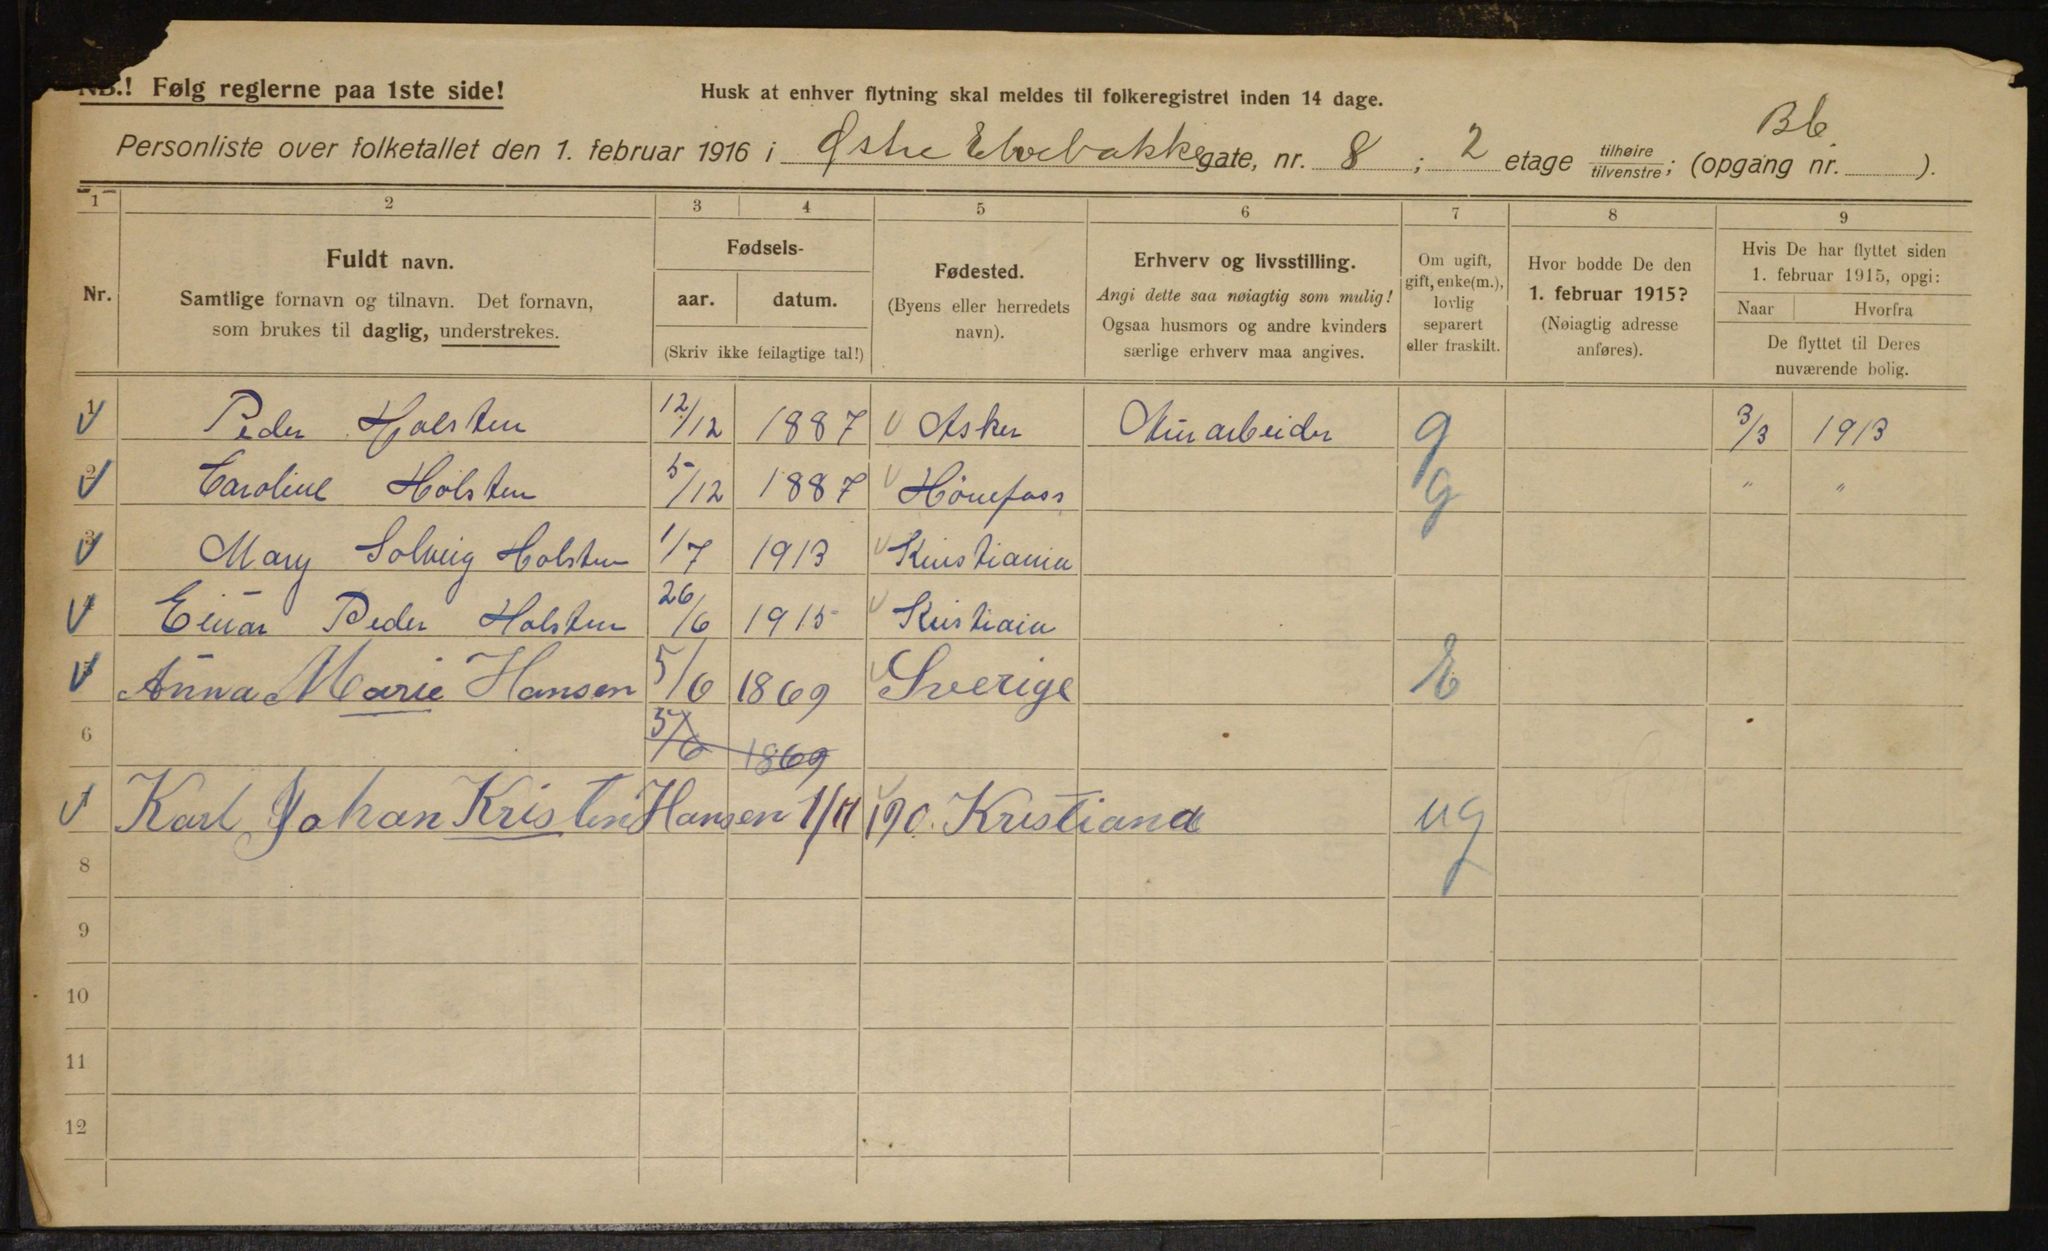 NB.! Følg reglerne paa 1ste side!
Husk at enhver flytning skal meldes til folkeregistret inden 14 dage.
Bb
Personliste over folketallet den 1. februar 1916 i Østre Elvebakke gate, nr. 8 ; 2 etage tilhøire/tilvenstre; (opgang nr. ).
1 2 3 4 5 6 7 8 9
Nr.
Fuldt navn.
Samtlige fornavn og tilnavn. Det fornavn,
som brukes til daglig, understrekes.
Fødsels-
aar. datum.
(Skriv ikke feilagtige tal!)
Fødested.
(Byens eller herredets
navn).
Erhverv og livsstilling.
Angi dette saa nøiagtig som mulig!
Ogsaa husmors og andre kvinders
særlige erhverv maa angives.
Om ugift,
gift, enke(m.),
lovlig
separert
eller fraskilt.
Hvor bodde De den
1. februar 1915?
(Nøiagtig adresse
anføres).
Hvis De har flyttet siden
1. februar 1915, opgi:
Naar Hvorfra
De flyttet til Deres
nuværende bolig.
1 Peder Holsten 12/12 1887 Asker Murarbeider g 3/3 1913
2 Caroline Holsten 5/12 1887 Hönefoss g " "
3 Mary Solveig Holsten 1/7 1913 Kristiania
Einar Peder Holsten 26/6 1915 Kristiaia
5 Anna Marie Hansen 5/6 1869 Sverige E
6 5/6 1869
Karl Johan Kristen Hansen 1/11 190. Kristiana ug
8
9
10
11
12